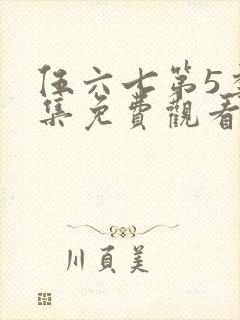 伍六七第5季
集免費觀看
川頁美